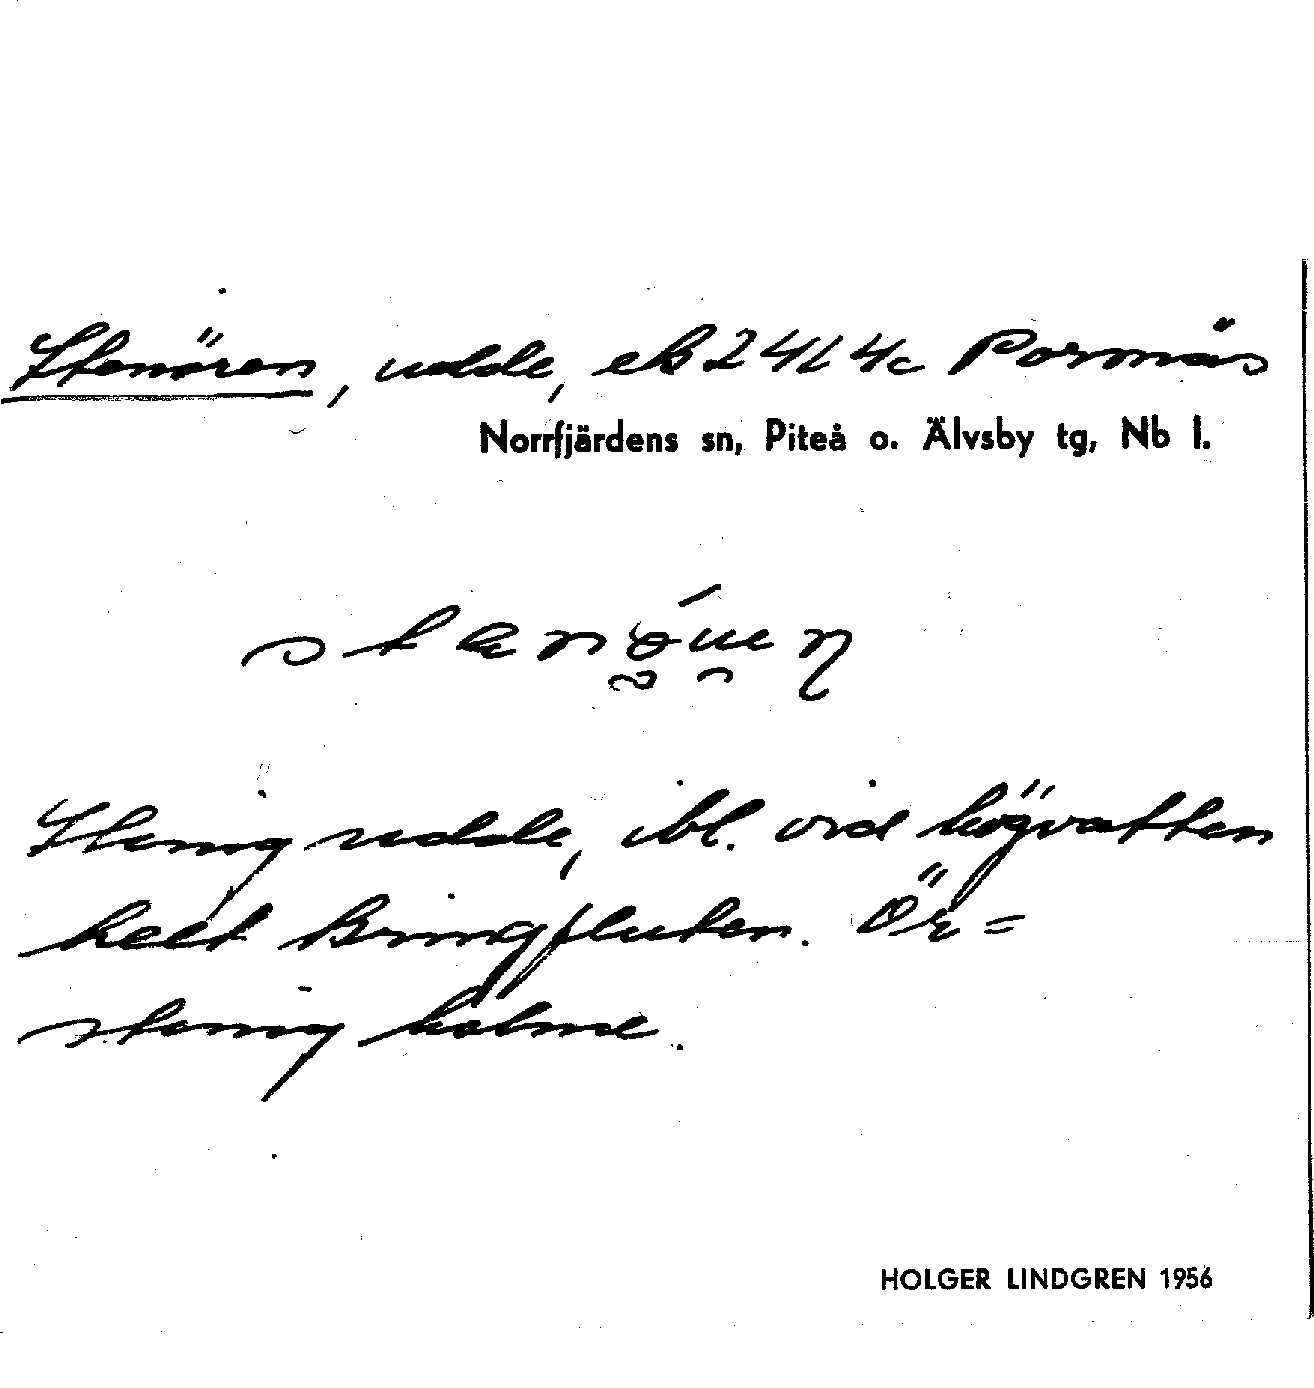 Stenören, udde, ek 24L4c Porsnäs
Norrfjärdens sn, Piteå o. Älvsby tg, Nb l.
Stenig udde, ibl. vid högvatten
helt kringfluten. Ör =
stenig holme.
HOLGER LINDGREN 1956